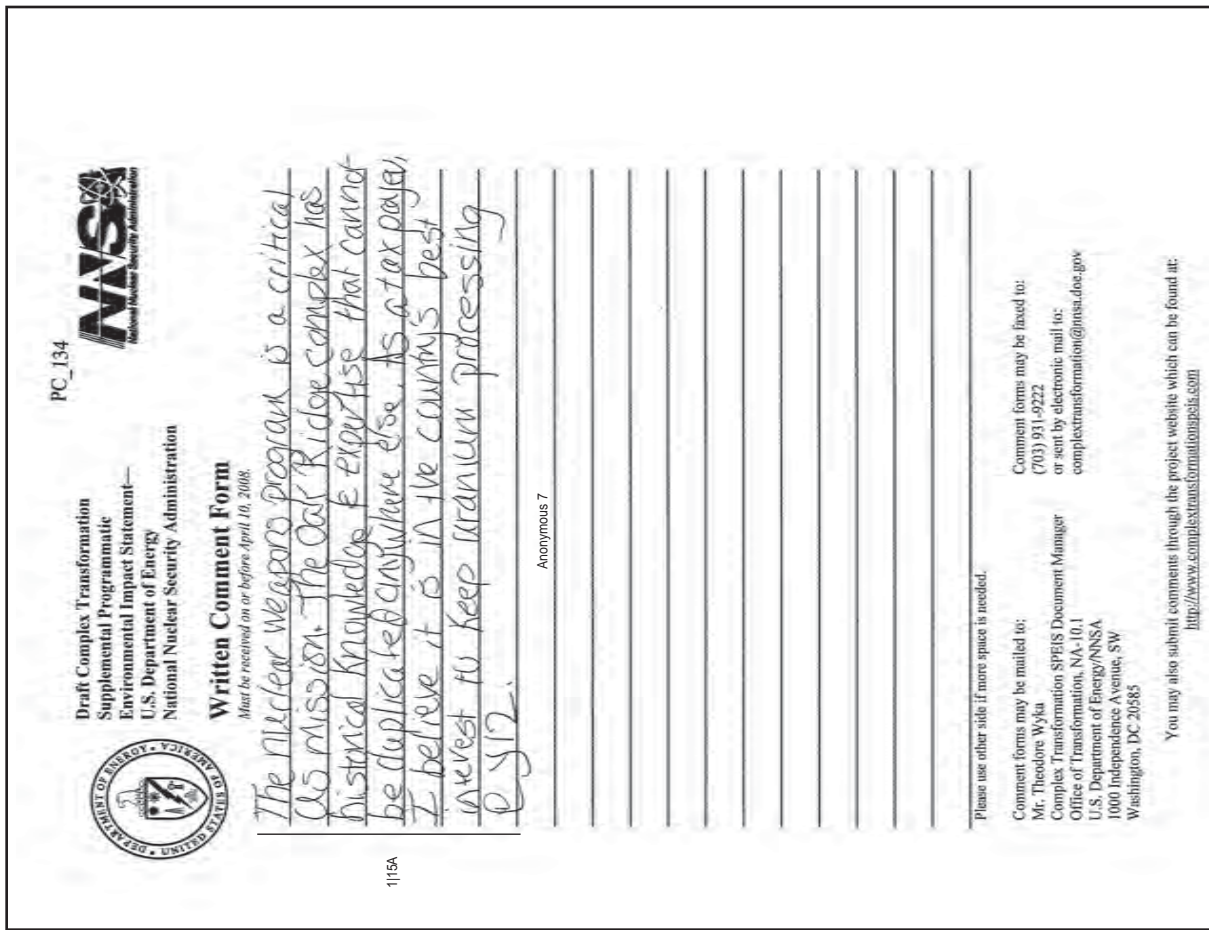 PC_134
DEPARTMENT OF ENERGY • UNITED STATES OF AMERICA
Draft Complex Transformation
Supplemental Programmatic
Environmental Impact Statement—
U.S. Department of Energy
National Nuclear Security Administration
NNSA
National Nuclear Security Administration
Written Comment Form
Must be received on or before April 10, 2008.
The nuclear weapons program is a critical
US mission. The Oak Ridge complex has
historical knowledge & expertise that cannot
be duplicated anywhere else. As a tax payer,
I believe it is in the country's best
interest to keep uranium processing
@ Y12.
1|15A
Anonymous 7
Please use other side if more space is needed.
Comment forms may be mailed to:
Mr. Theodore Wyka
Complex Transformation SPEIS Document Manager
Office of Transformation, NA-10.1
U.S. Department of Energy/NNSA
1000 Independence Avenue, SW
Washington, DC 20585
Comment forms may be faxed to:
(703) 931-9222
or sent by electronic mail to:
complextransformation@nnsa.doe.gov
You may also submit comments through the project website which can be found at:
http://www.complextransformationspeis.com